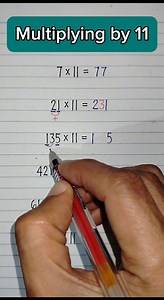 Multiplying by 11
7 x 11 = 77
21 x 11 = 231
+
135 x 11 = 1 5
42
11